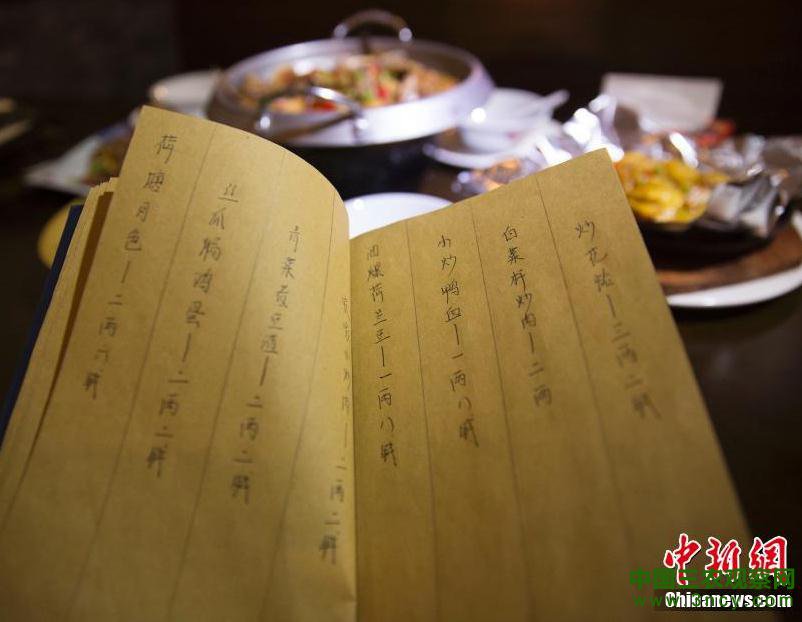 炒花蛤—三两二钱
白菜杆炒肉—二两
小炒鸭血—一两八钱
油爆荷兰豆—一两八钱
—一两二钱
青菜煮豆渣—二两二钱
丝瓜焗鸡蛋—二两二钱
荷塘月色—二两八钱
中新網
中国三农观察网
www.3ncy.com
Chinanews.com